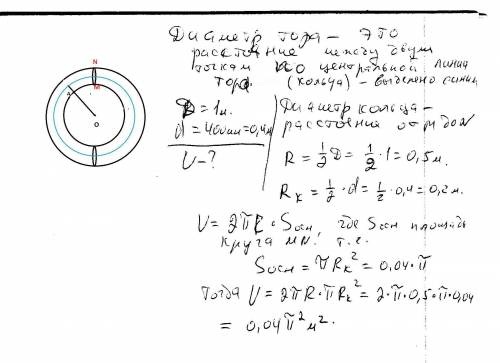 Диаметр тора – это
расстояние между двумя
точкам по центральной линии
тора (кольца) – выделено синим
N
M
A
O
D = 1м.
d = 400мм = 0,4м
V – ?
Диаметр кольца –
расстояние от M до N
R = 1/2 D = 1/2 · 1 = 0,5 м.
Rк = 1/2 · d = 1/2 · 0,4 = 0,2 м.
V = 2πR · Sосн, где Sосн площадь
круга MN, т.е.
Sосн = πRк² = 0,04 · π
Тогда V = 2πR · πRк² = 2 · π · 0,5 · π · 0,04
= 0,04π² м².